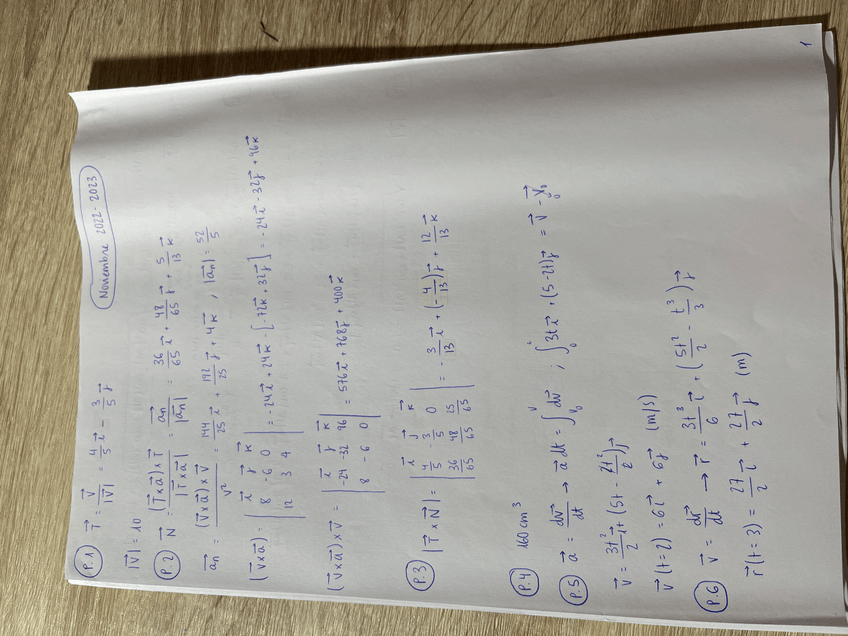 Noviembre 2022-2023
P.1 T⃗ = v⃗/|v⃗| = 4/5 i⃗ - 3/5 j⃗
|v⃗| = 10
P.2 N⃗ = (T⃗×a⃗)×T⃗ / |T⃗×a⃗| = a⃗n/|a⃗n| = 36/65 i⃗ + 48/65 j⃗ + 5/13 k⃗
a⃗n = (v⃗×a⃗)×v⃗ / v² = 144/25 i⃗ + 192/25 j⃗ + 4k⃗ ; |a⃗n| = 52/5
(v⃗×a⃗) = | i⃗ j⃗ k⃗ ; 8 -6 0 ; 12 3 4 | = -24i⃗ + 24k⃗ - [-72k⃗ + 32j⃗] = -24i⃗ - 32j⃗ + 96k⃗
(v⃗×a⃗)×v⃗ = | i⃗ j⃗ k⃗ ; -24 -32 96 ; 8 -6 0 | = 576i⃗ + 768j⃗ + 400k⃗
P.3 |T⃗×N⃗| = | i⃗ j⃗ k⃗ ; 4/5 -3/5 0 ; 36/65 48/65 25/65 | = -3/13 i⃗ + (-4/13) j⃗ + 12/13 k⃗
P.4 160 cm³
P.5 a⃗ = dv⃗/dt → a⃗ dt = ∫ᵥ₀ᵛ dv⃗ ; ∫₀ᵗ 3t i⃗ + (5-2t) j⃗ = v⃗ - v⃗₀
v⃗ = 3t²/2 i⃗ + (5t - 2t²/2) j⃗
v⃗(t=2) = 6i⃗ + 6j⃗ (m/s)
P.6 v⃗ = dr⃗/dt → r⃗ = 3t³/6 i⃗ + (5t²/2 - t³/3) j⃗
r⃗(t=3) = 27/2 i⃗ + 27/2 j⃗ (m)
1